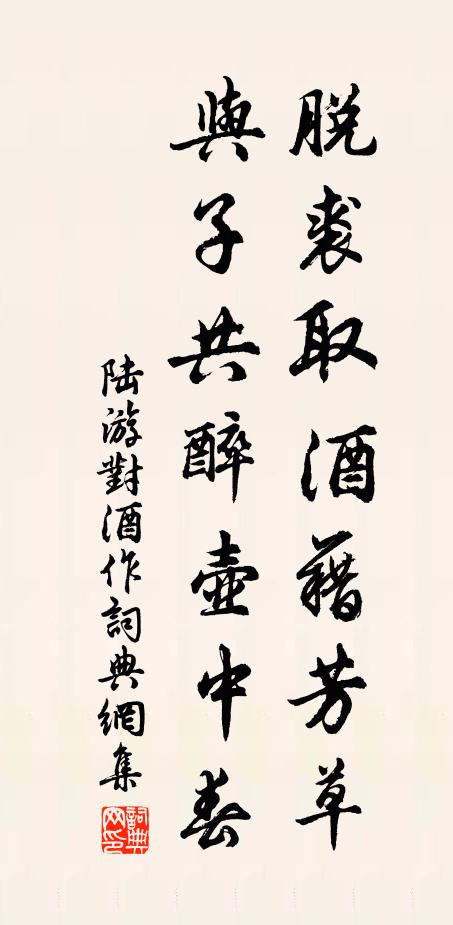 脱裘取酒藉芳草
與子共醉壺中春
陸游對酒作詞典網集
詞典網印